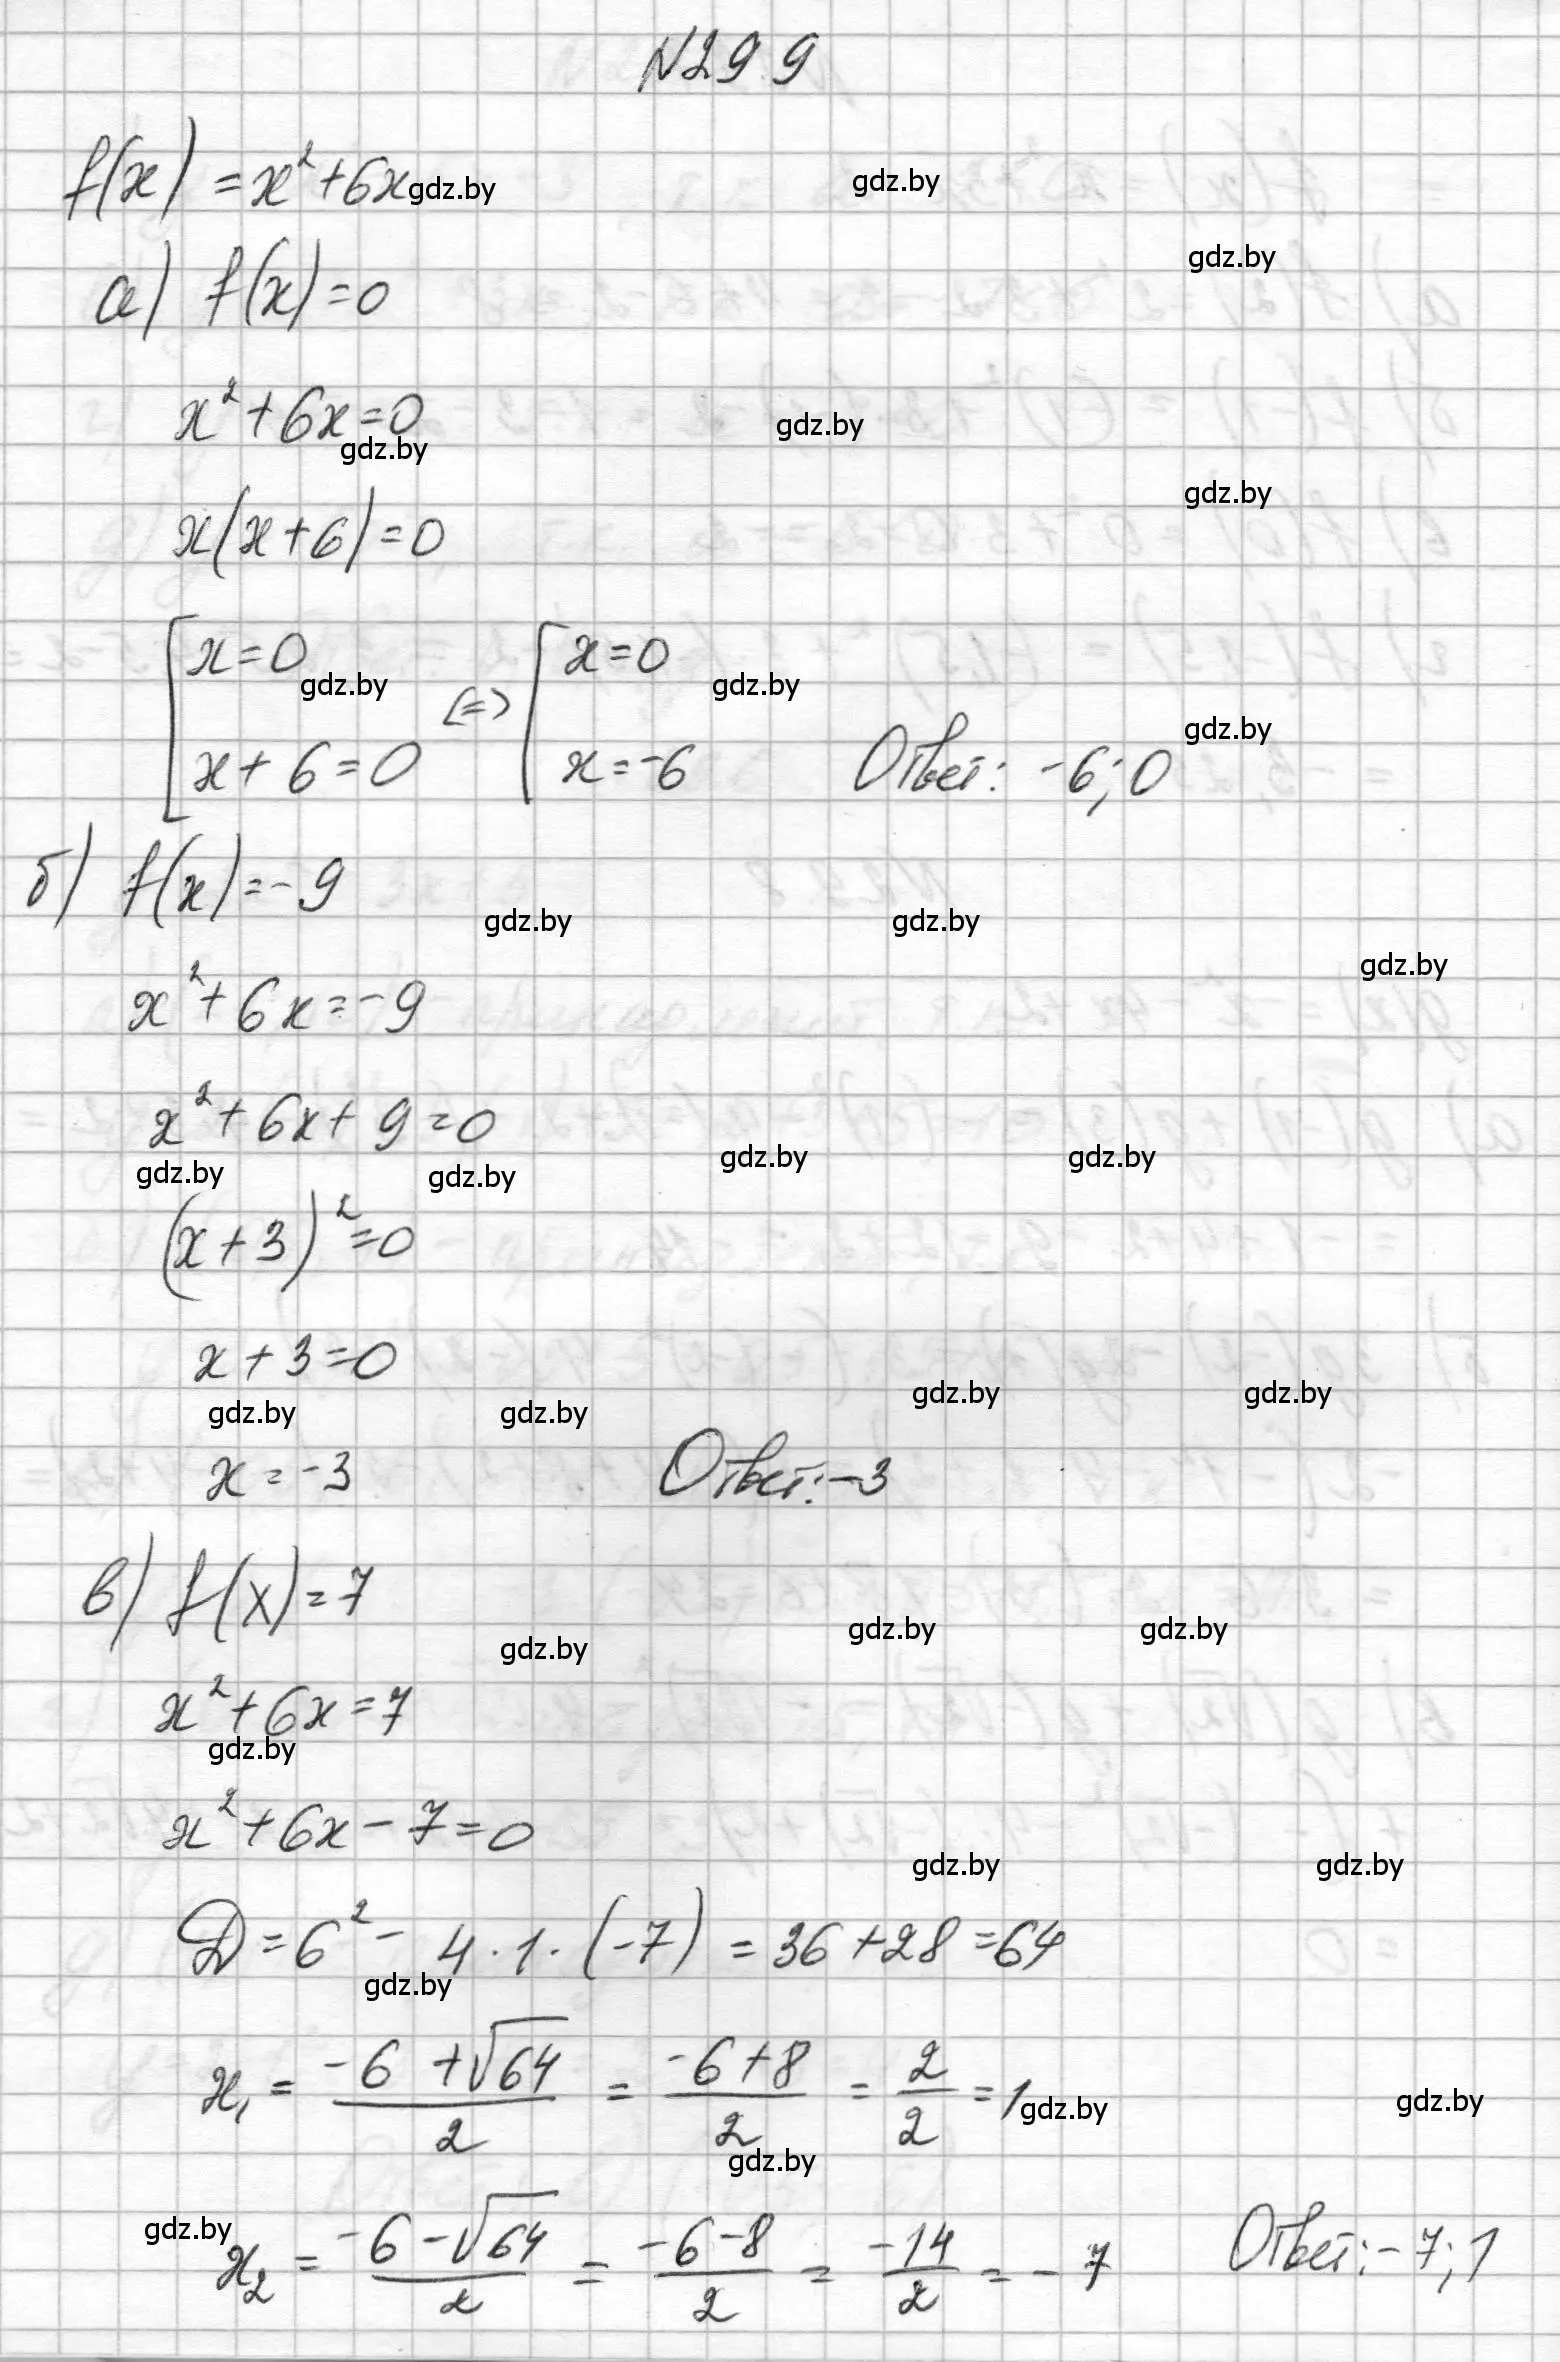 N299
f(x) = x² + 6x gdz.by gdz.by
gdz.by
а) f(x) = 0
x² + 6x = 0
gdz.by gdz.by
gdz.by
x(x + 6) = 0
[x = 0 <=> [x = 0
gdz.by gdz.by
gdz.by
x + 6 = 0 x = -6 Ответ: -6; 0
б) f(x) = -9
gdz.by gdz.by
gdz.by
x² + 6x = -9
x² + 6x + 9 = 0
gdz.by gdz.by gdz.by gdz.by
(x + 3)² = 0
x + 3 = 0
gdz.by gdz.by gdz.by gdz.by
x = -3 Ответ: -3
в) f(x) = 7
gdz.by gdz.by gdz.by
x² + 6x = 7
gdz.by
x² + 6x - 7 = 0
gdz.by gdz.by
D = 6² - 4 · 1 · (-7) = 36 + 28 = 64
gdz.by
x₁ = (-6 + √64)/2 = (-6 + 8)/2 = 2/2 = 1 gdz.by gdz.by
gdz.by
gdz.by
x₂ = (-6 - √64)/2 = (-6 - 8)/2 = -14/2 = -7 Ответ: -7; 1